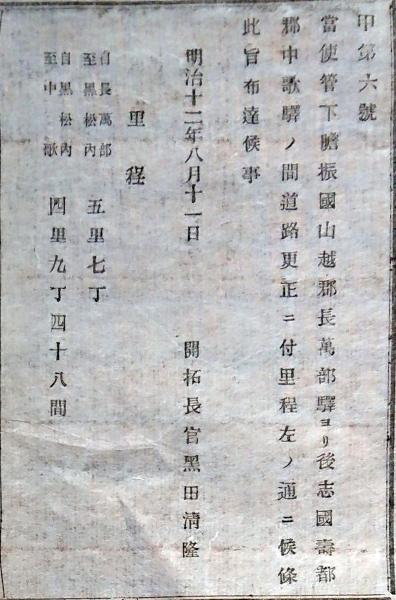 甲第六號
當使管下膽振國山越郡長萬部驛ヨリ後志國壽都
郡中歌驛ノ間道路更正ニ付里程左ノ通ニ候條
此旨布達候事
明治十二年八月十一日
開拓長官黑田清隆
里程
自長萬部
至黑松內
五里七丁
自黑松內
至中歌
四里九丁四十八間